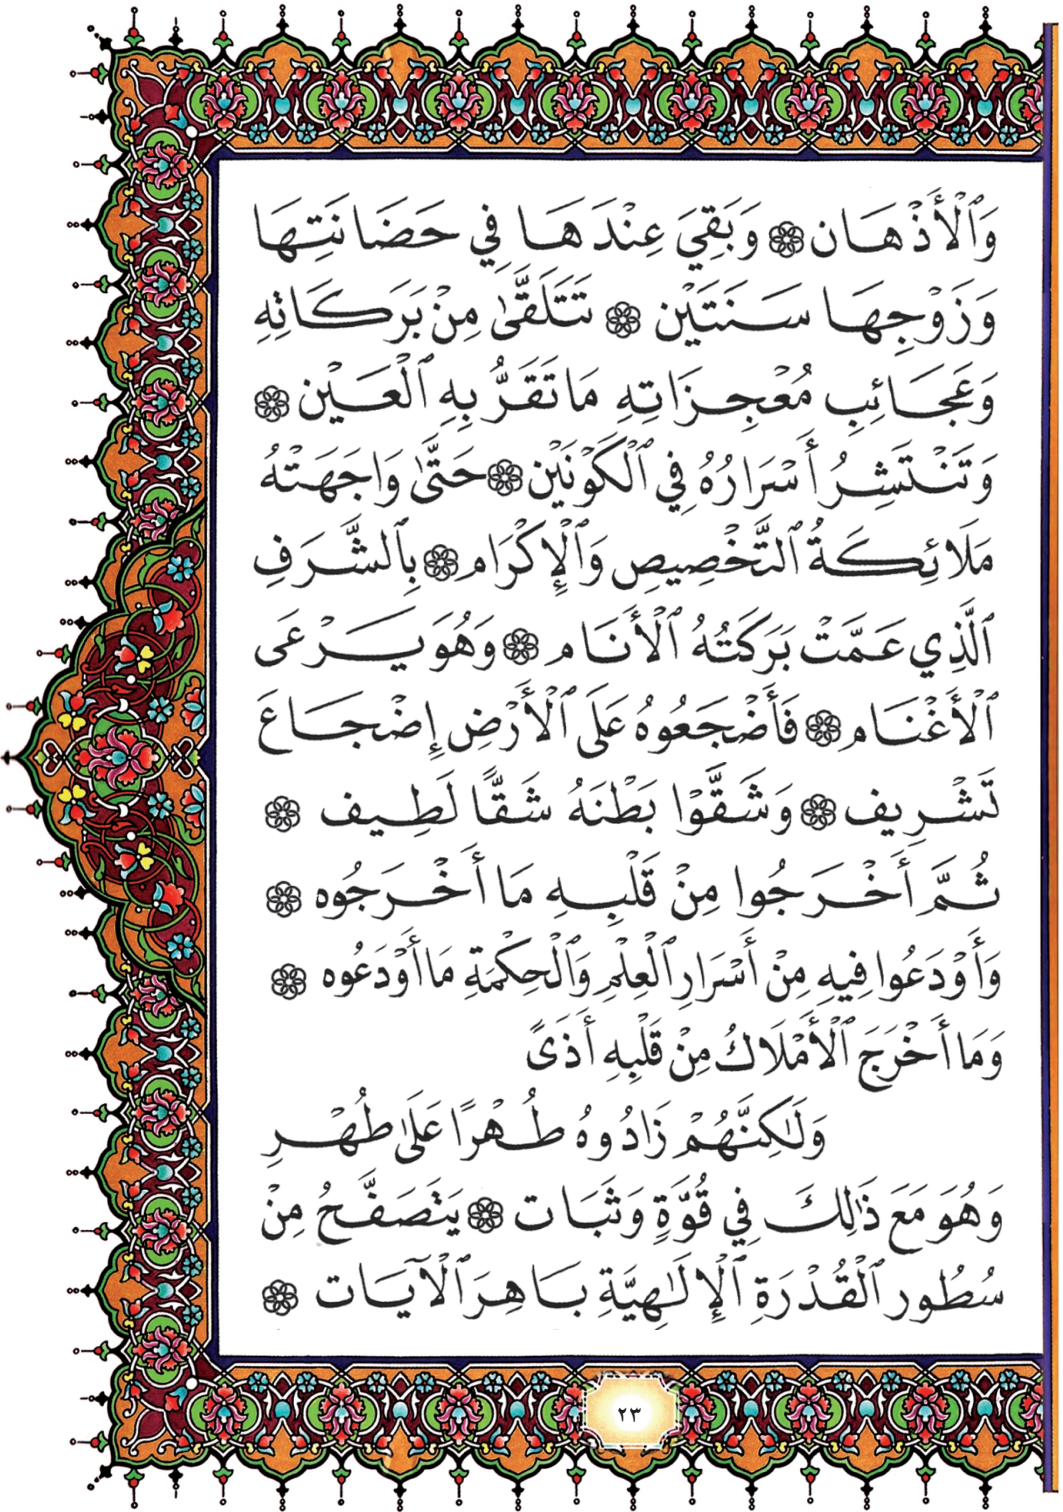 وَٱلْأَذْهَان ۞ وَبَقِيَ عِنْدَهَا فِي حَضَانَتِهَا
وَزَوْجِهَا سَنَتَيْن ۞ تَتَلَقَّىٰ مِنْ بَرَكَاتِهِ
وَعَجَائِبِ مُعْجِزَاتِهِ مَا تَقَرُّ بِهِ ٱلْعَيْن ۞
وَتَنْتَشِرُ أَسْرَارُهُ فِي ٱلْكَوْنَيْن ۞ حَتَّىٰ وَاجَهَتْهُ
مَلَائِكَةُ ٱلتَّخْصِيصِ وَٱلْإِكْرَام ۞ بِٱلشَّرَفِ
ٱلَّذِي عَمَّتْ بَرَكَتُهُ ٱلْأَنَام ۞ وَهُوَ يَرْعَى
ٱلْأَغْنَام ۞ فَأَضْجَعُوهُ عَلَى ٱلْأَرْضِ إِضْجَاعَ
تَشْرِيف ۞ وَشَقُّوْا بَطْنَهُ شَقًّا لَطِيف ۞
ثُمَّ أَخْرَجُوا مِنْ قَلْبِهِ مَا أَخْرَجُوه ۞
وَأَوْدَعُوا فِيهِ مِنْ أَسْرَارِ ٱلْعِلْمِ وَٱلْحِكْمَةِ مَا أَوْدَعُوه ۞
وَمَا أَخْرَجَ ٱلْأَمْلَاكُ مِنْ قَلْبِهِ أَذَىً
وَلَٰكِنَّهُمْ زَادُوهُ طُهْرًا عَلَىٰ طُهْرِ
وَهُوَ مَعَ ذَٰلِكَ فِي قُوَّةٍ وَثَبَات ۞ يَتَصَفَّحُ مِنْ
سُطُورِ ٱلْقُدْرَةِ ٱلْإِلَٰهِيَّةِ بَاهِرَ ٱلْآيَات ۞
٢٣